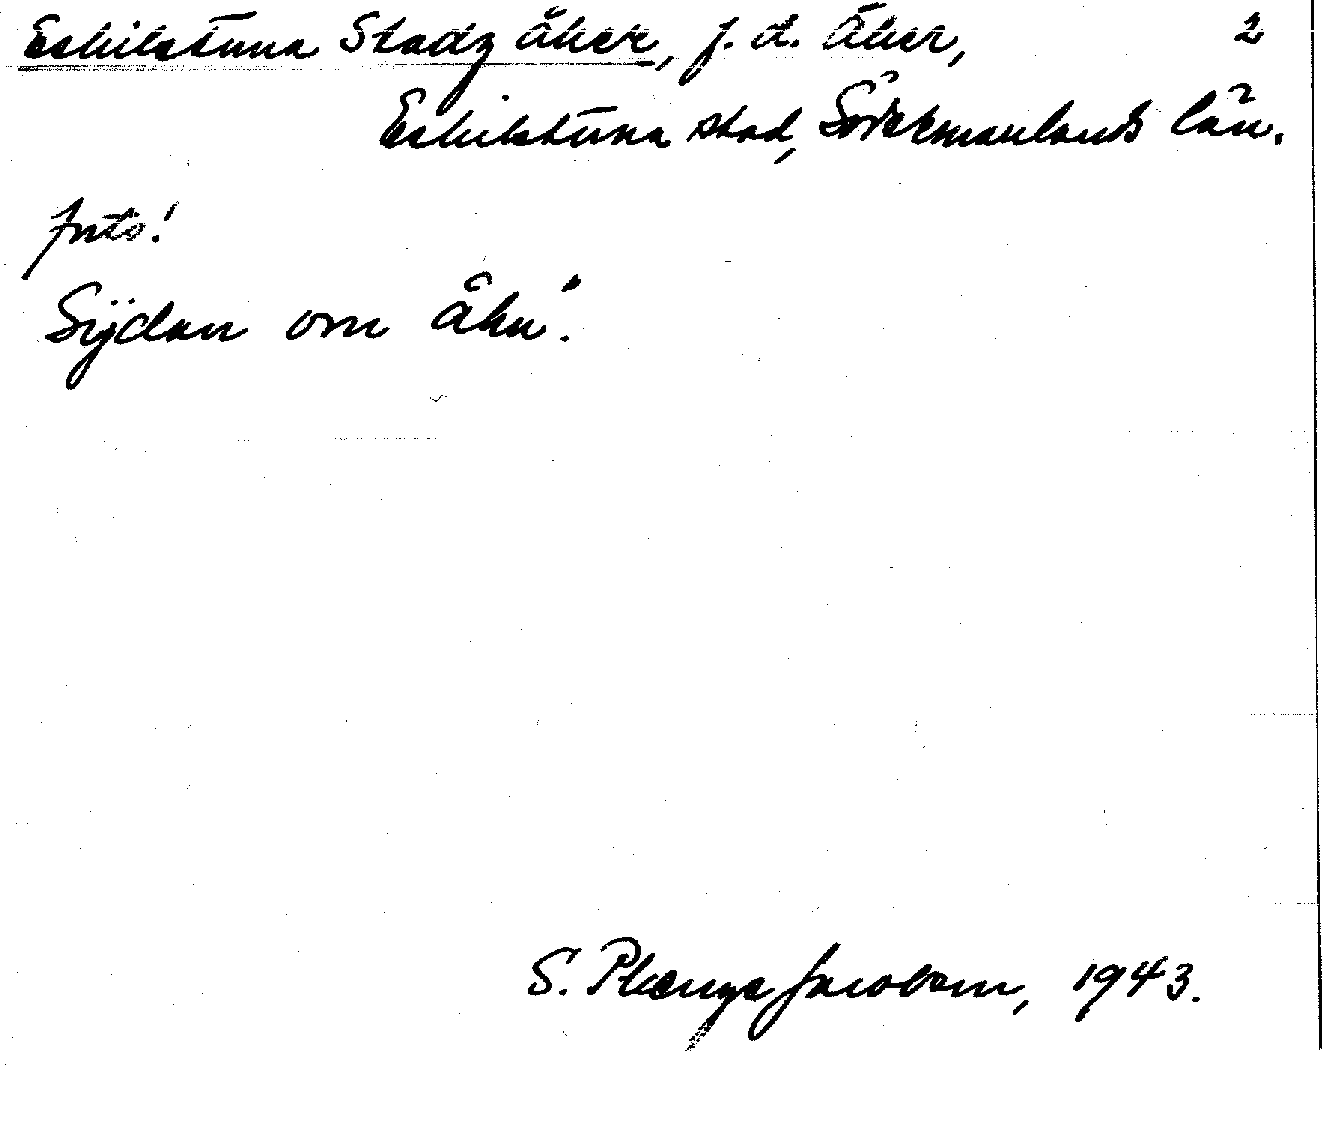 Eskilstuna Stadz åker, f. d. åker, 2
Eskilstuna stad, Södermanlands län.
forts!
Sÿdan om åhn".
S. Plænge Jacobson, 1943.